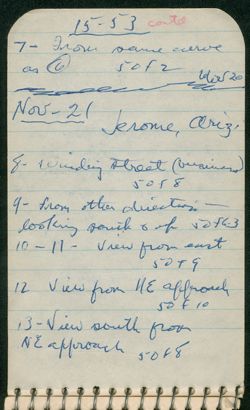 15-53 contd
7- From same curve
as 6 50 f 2
Nov 20
Nov-21
Jerome, Ariz.
8- Winding street (business)
50 f 8
9- From other direction -
looking south 50 f 6.3
10-11- View from east
50 f 9
12 View from NE approach
50 f 10
13-View south from
NE approach 50 f 8